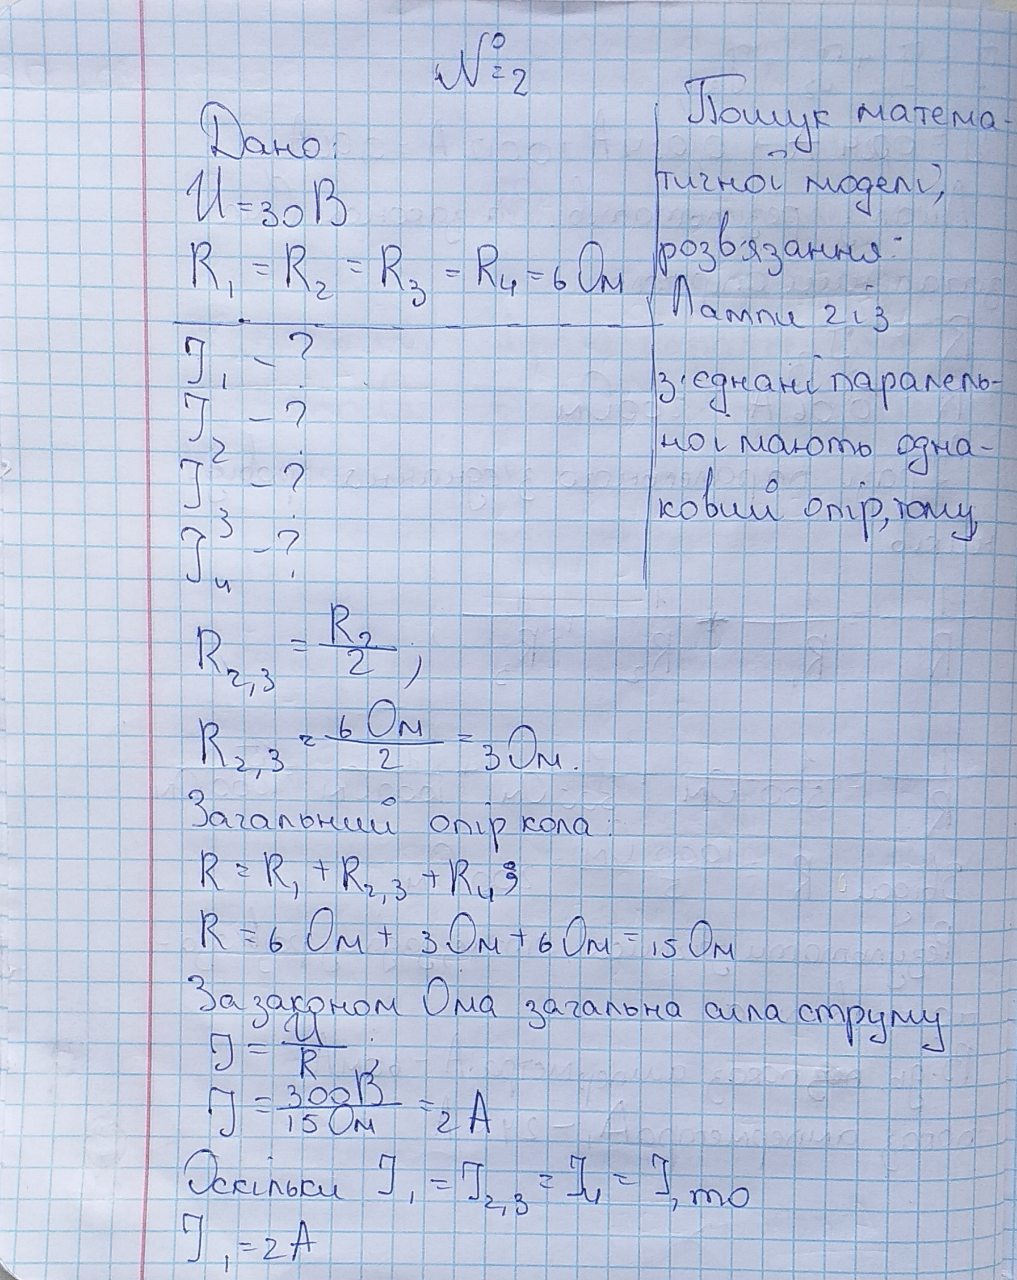 №2
Дано:
U = 30 В
R₁ = R₂ = R₃ = R₄ = 6 Ом
I₁ - ?
I₂ - ?
I₃ - ?
I₄ - ?
Пошук матема-
тичної моделі,
розвязання:
Лампи 2 і 3
з'єднані паралель-
но і мають одна-
ковий опір, тому
R₂,₃ = R₂/2;
R₂,₃ = 6 Ом/2 = 3 Ом.
Загальний опір кола:
R = R₁ + R₂,₃ + R₄;
R = 6 Ом + 3 Ом + 6 Ом = 15 Ом
За законом Ома загальна сила струму
I = U/R
I = 300В/15 Ом = 2 А
Оскільки I₁ = I₂,₃ = I₄ = I, то
I₁ = 2 А